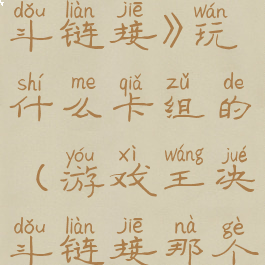 dǒu liàn jiē wán
斗链接》玩
shí me qiǎ zǔ de
什么卡组的
yóu xì wáng jué
（游戏王决
dǒu liàn jiē nà gè
斗链接那个